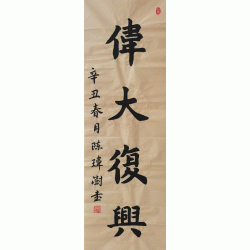 偉大復興
辛丑春月陈璋澍書